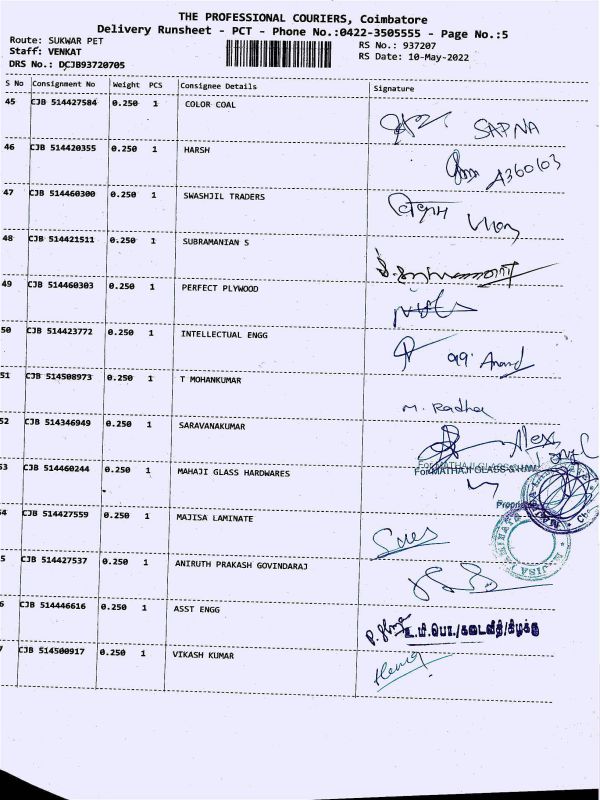 THE PROFESSIONAL COURIERS, Coimbatore
Delivery Runsheet - PCT - Phone No.:0422-3505555 - Page No.:5
Route: SUKWAR PET
Staff: VENKAT
DRS No.: DCJB93720705
RS No.: 937207
RS Date: 10-May-2022
S No Consignment No Weight PCS Consignee Details Signature
45 CJB 514427584 0.250 1 COLOR COAL
SAPNA
46 CJB 514420355 0.250 1 HARSH
A360103
47 CJB 514460300 0.250 1 SWASHJIL TRADERS
48 CJB 514421511 0.250 1 SUBRAMANIAN S
49 CJB 514460303 0.250 1 PERFECT PLYWOOD
50 CJB 514423772 0.250 1 INTELLECTUAL ENGG
Anand
51 CJB 514508973 0.250 1 T MOHANKUMAR
M. Radha
52 CJB 514346949 0.250 1 SARAVANAKUMAR
Alex
53 CJB 514460244 0.250 1 MAHAJI GLASS HARDWARES
For MATHAJI GLASS
4 CJB 514427559 0.250 1 MAJISA LAMINATE
5 CJB 514427537 0.250 1 ANIRUTH PRAKASH GOVINDARAJ
6 CJB 514446616 0.250 1 ASST ENGG
உ.மி.பொ./கடைவீதி/கிழக்கு
7 CJB 514500917 0.250 1 VIKASH KUMAR